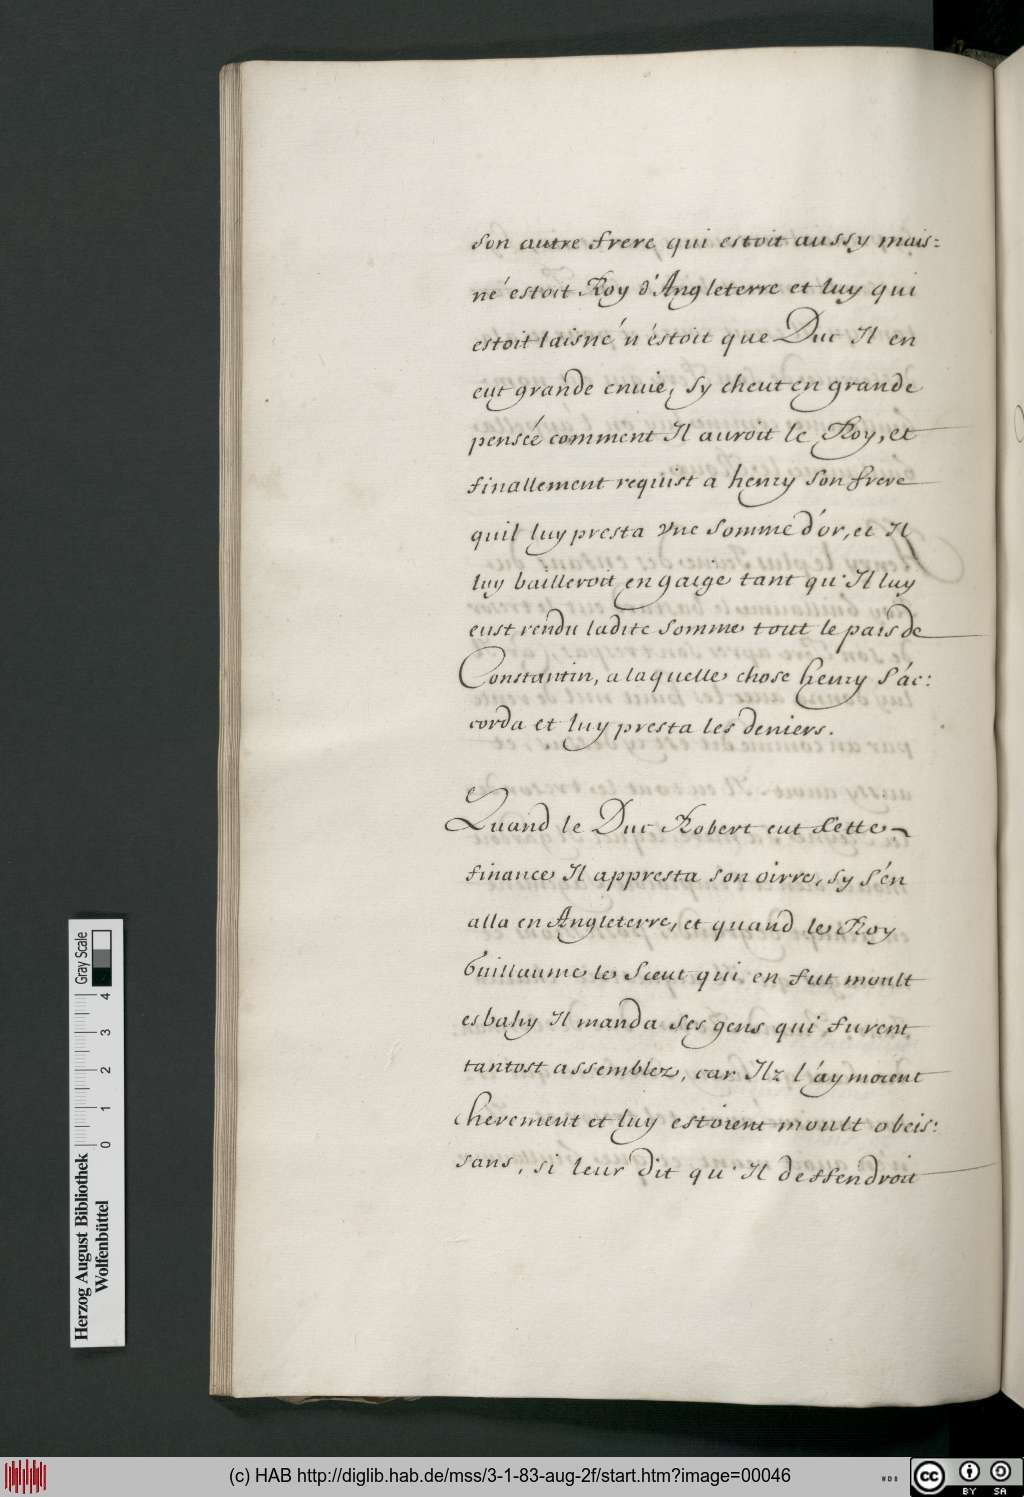 son autre frere qui estoit aussy mais=
né estoit Roy d'Angleterre et luy qui
estoit laisné n'éstoit que Duc Il en
eut grande enuie, sy cheut en grande
pensée comment Il auroit le Roy, et
finallement requist a henry son frere
quil luy presta vne somme d'or, et Il
luy bailleroit en gaige tant qu'Il luy
eust rendu ladite somme tout le pais de
Constantin, a laquelle chose henry s'ác:
corda et luy presta les deniers.
Quand le Duc Robert eut cette
finance Il appresta son oirre, sy s'én
alla en Angleterre, et quand le Roy
Guillaume le sceut qui en fut moult
esbahy Il manda ses gens qui furent
tantost assemblez, car Ilz l'aymoient
cherement et luy estoient moult obeis:
sans, si leur dit qu'Il deffendroit
Herzog August Bibliothek
Wolfenbüttel
0 1 2 3 4
Gray Scale
(c) HAB http://diglib.hab.de/mss/3-1-83-aug-2f/start.htm?image=00046
WDB
cc BY SA